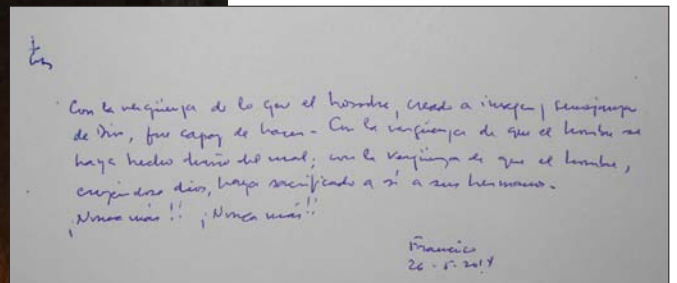 Con la vergüenza de lo que el hombre, creado a imagen y semejanza
de Dios, fue capaz de hacer - Con la vergüenza de que el hombre se
haya hecho dueño del mal; con la vergüenza de que el hombre,
creyéndose dios, haya sacrificado a sí a sus hermanos.
¡Nunca más!! ¡Nunca más!!
Francisco
26-5-2014